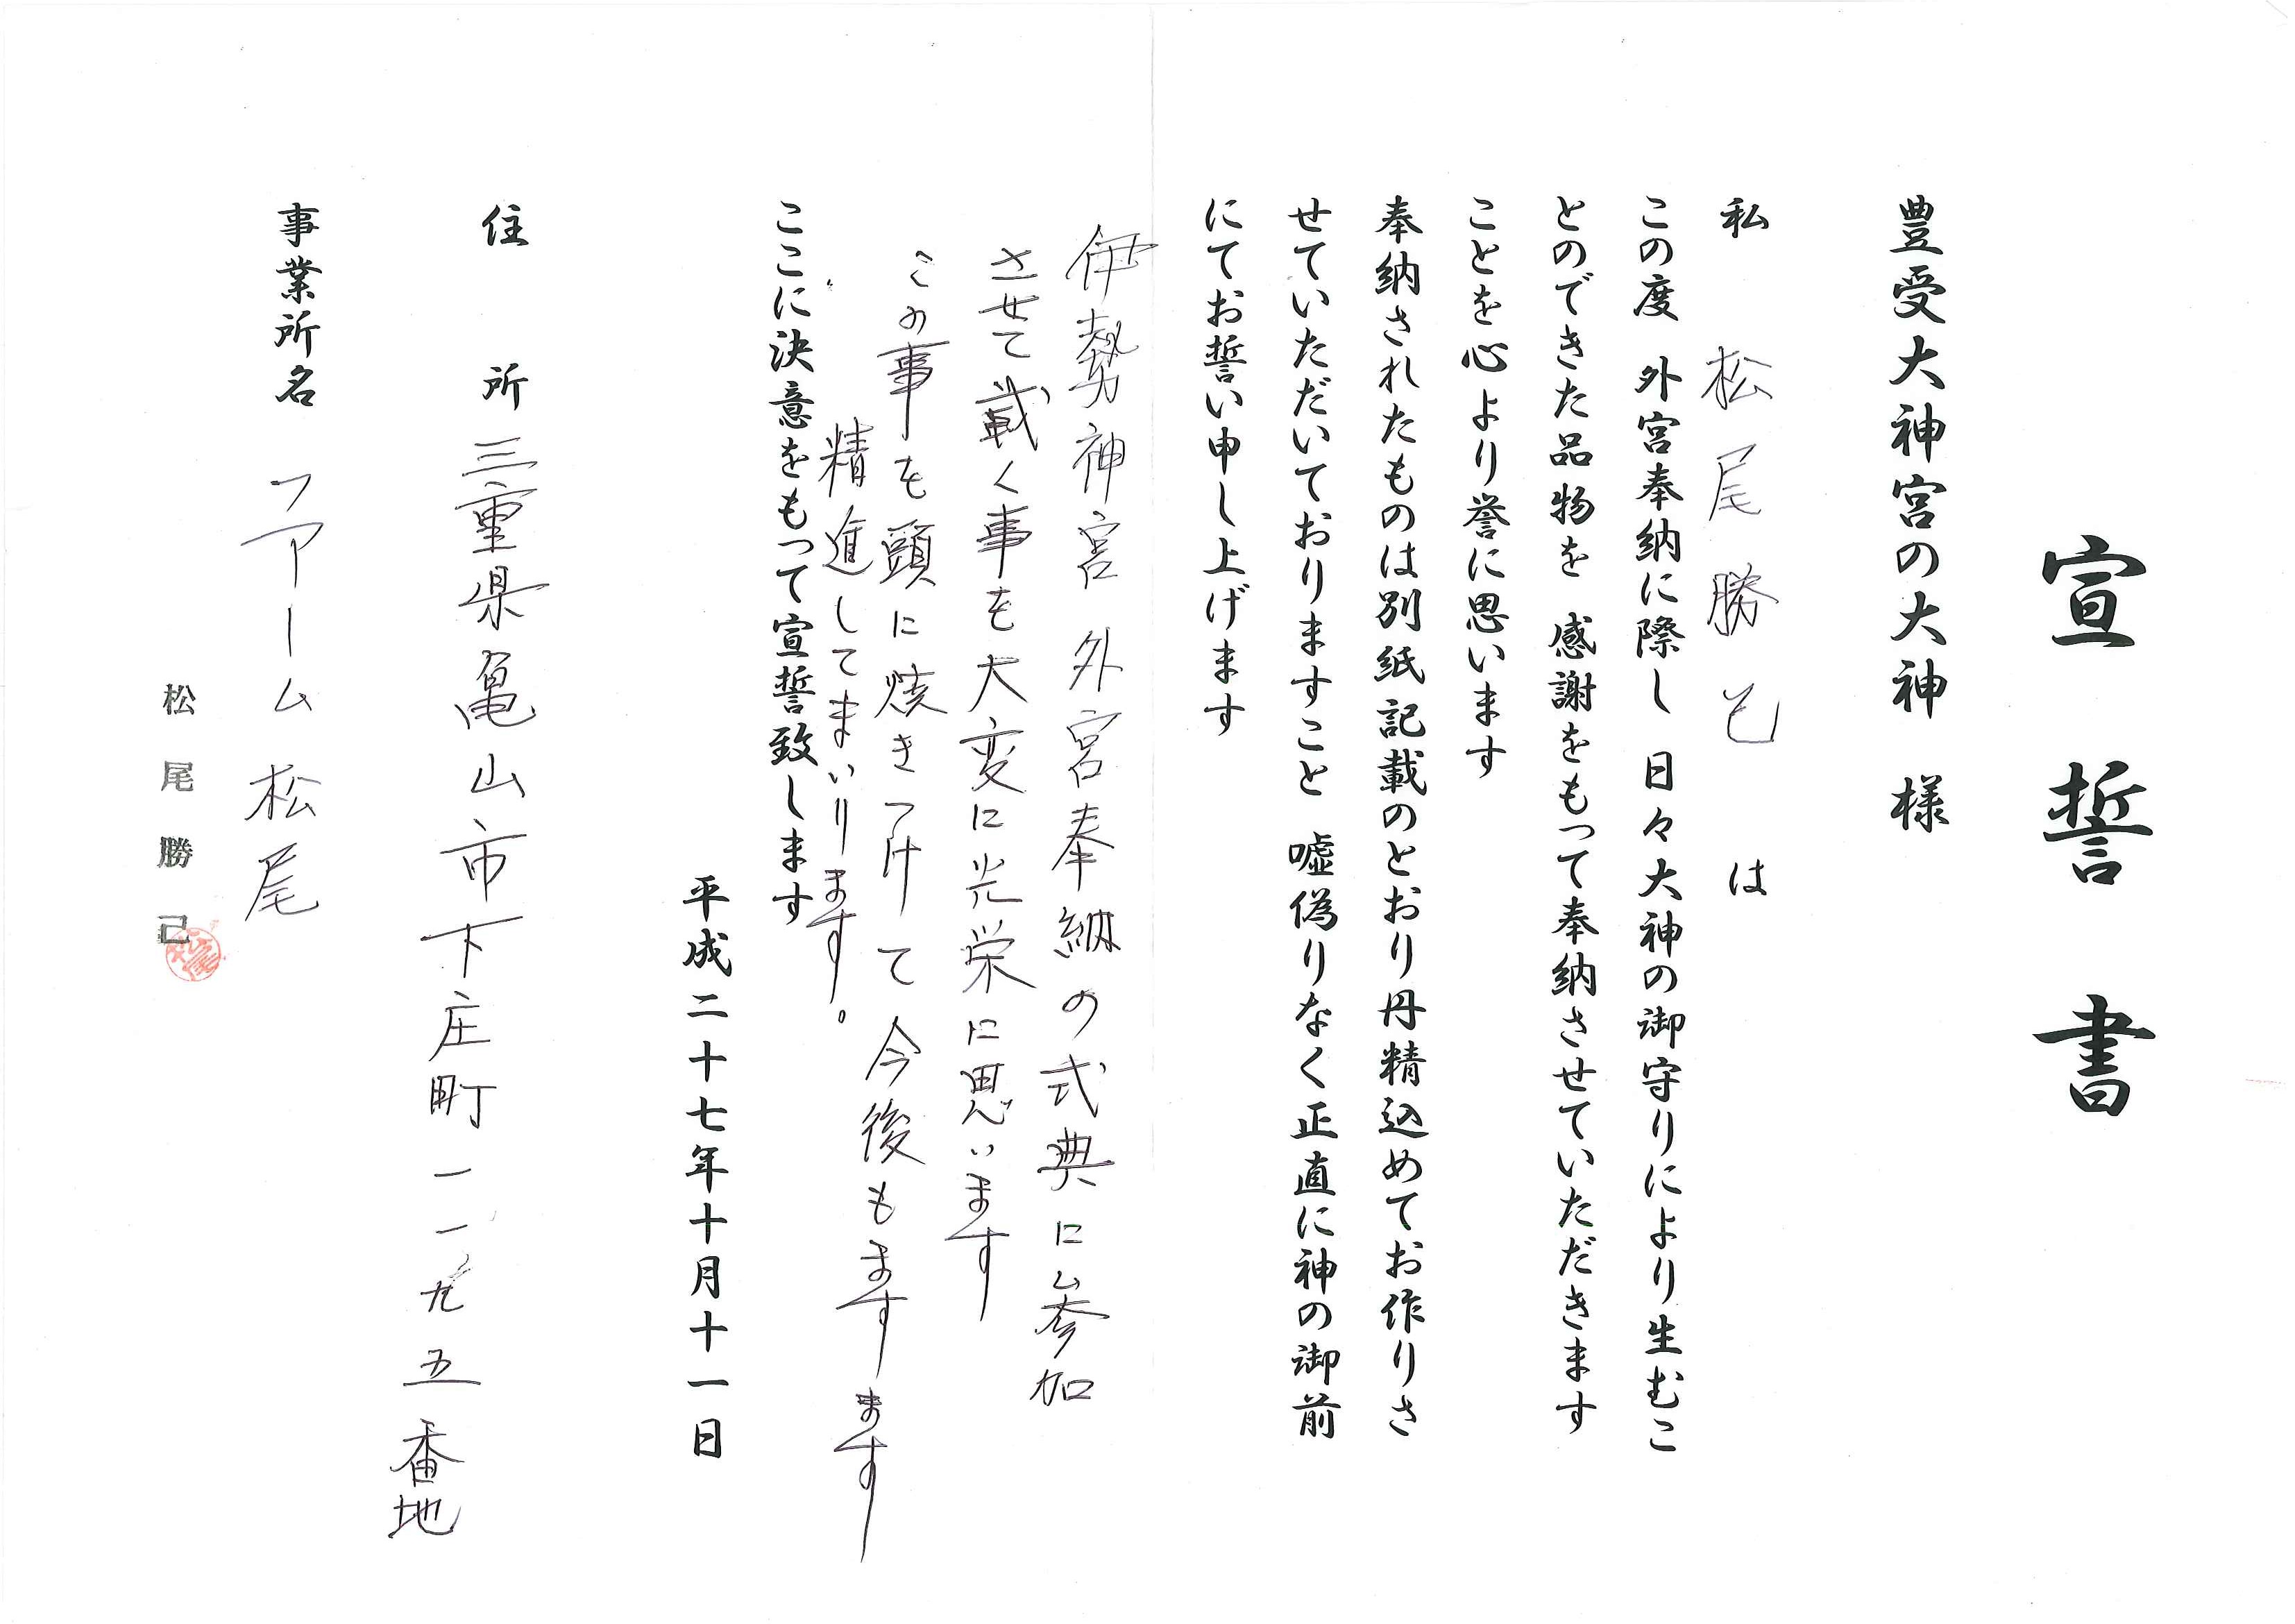 宣誓書
豊受大神宮の大神 様
私 松尾勝己 は
この度 外宮奉納に際し 日々大神の御守りにより生むこ
とのできた品物を 感謝をもって奉納させていただきます
ことを心より誉に思います
奉納されたものは別紙記載のとおり丹精込めてお作りさ
せていただいておりますこと 嘘偽りなく正直に神の御前
にてお誓い申し上げます
伊勢神宮外宮奉納の式典に参加
させて載く事を大変に光栄に思います
この事を頭に焼きつけて今後もますます
精進してまいります。
ここに決意をもって宣誓致します
平成二十七年十月十一日
住所 三重県亀山市下庄町一一九五番地
事業所名 ファーム松尾
松尾勝己